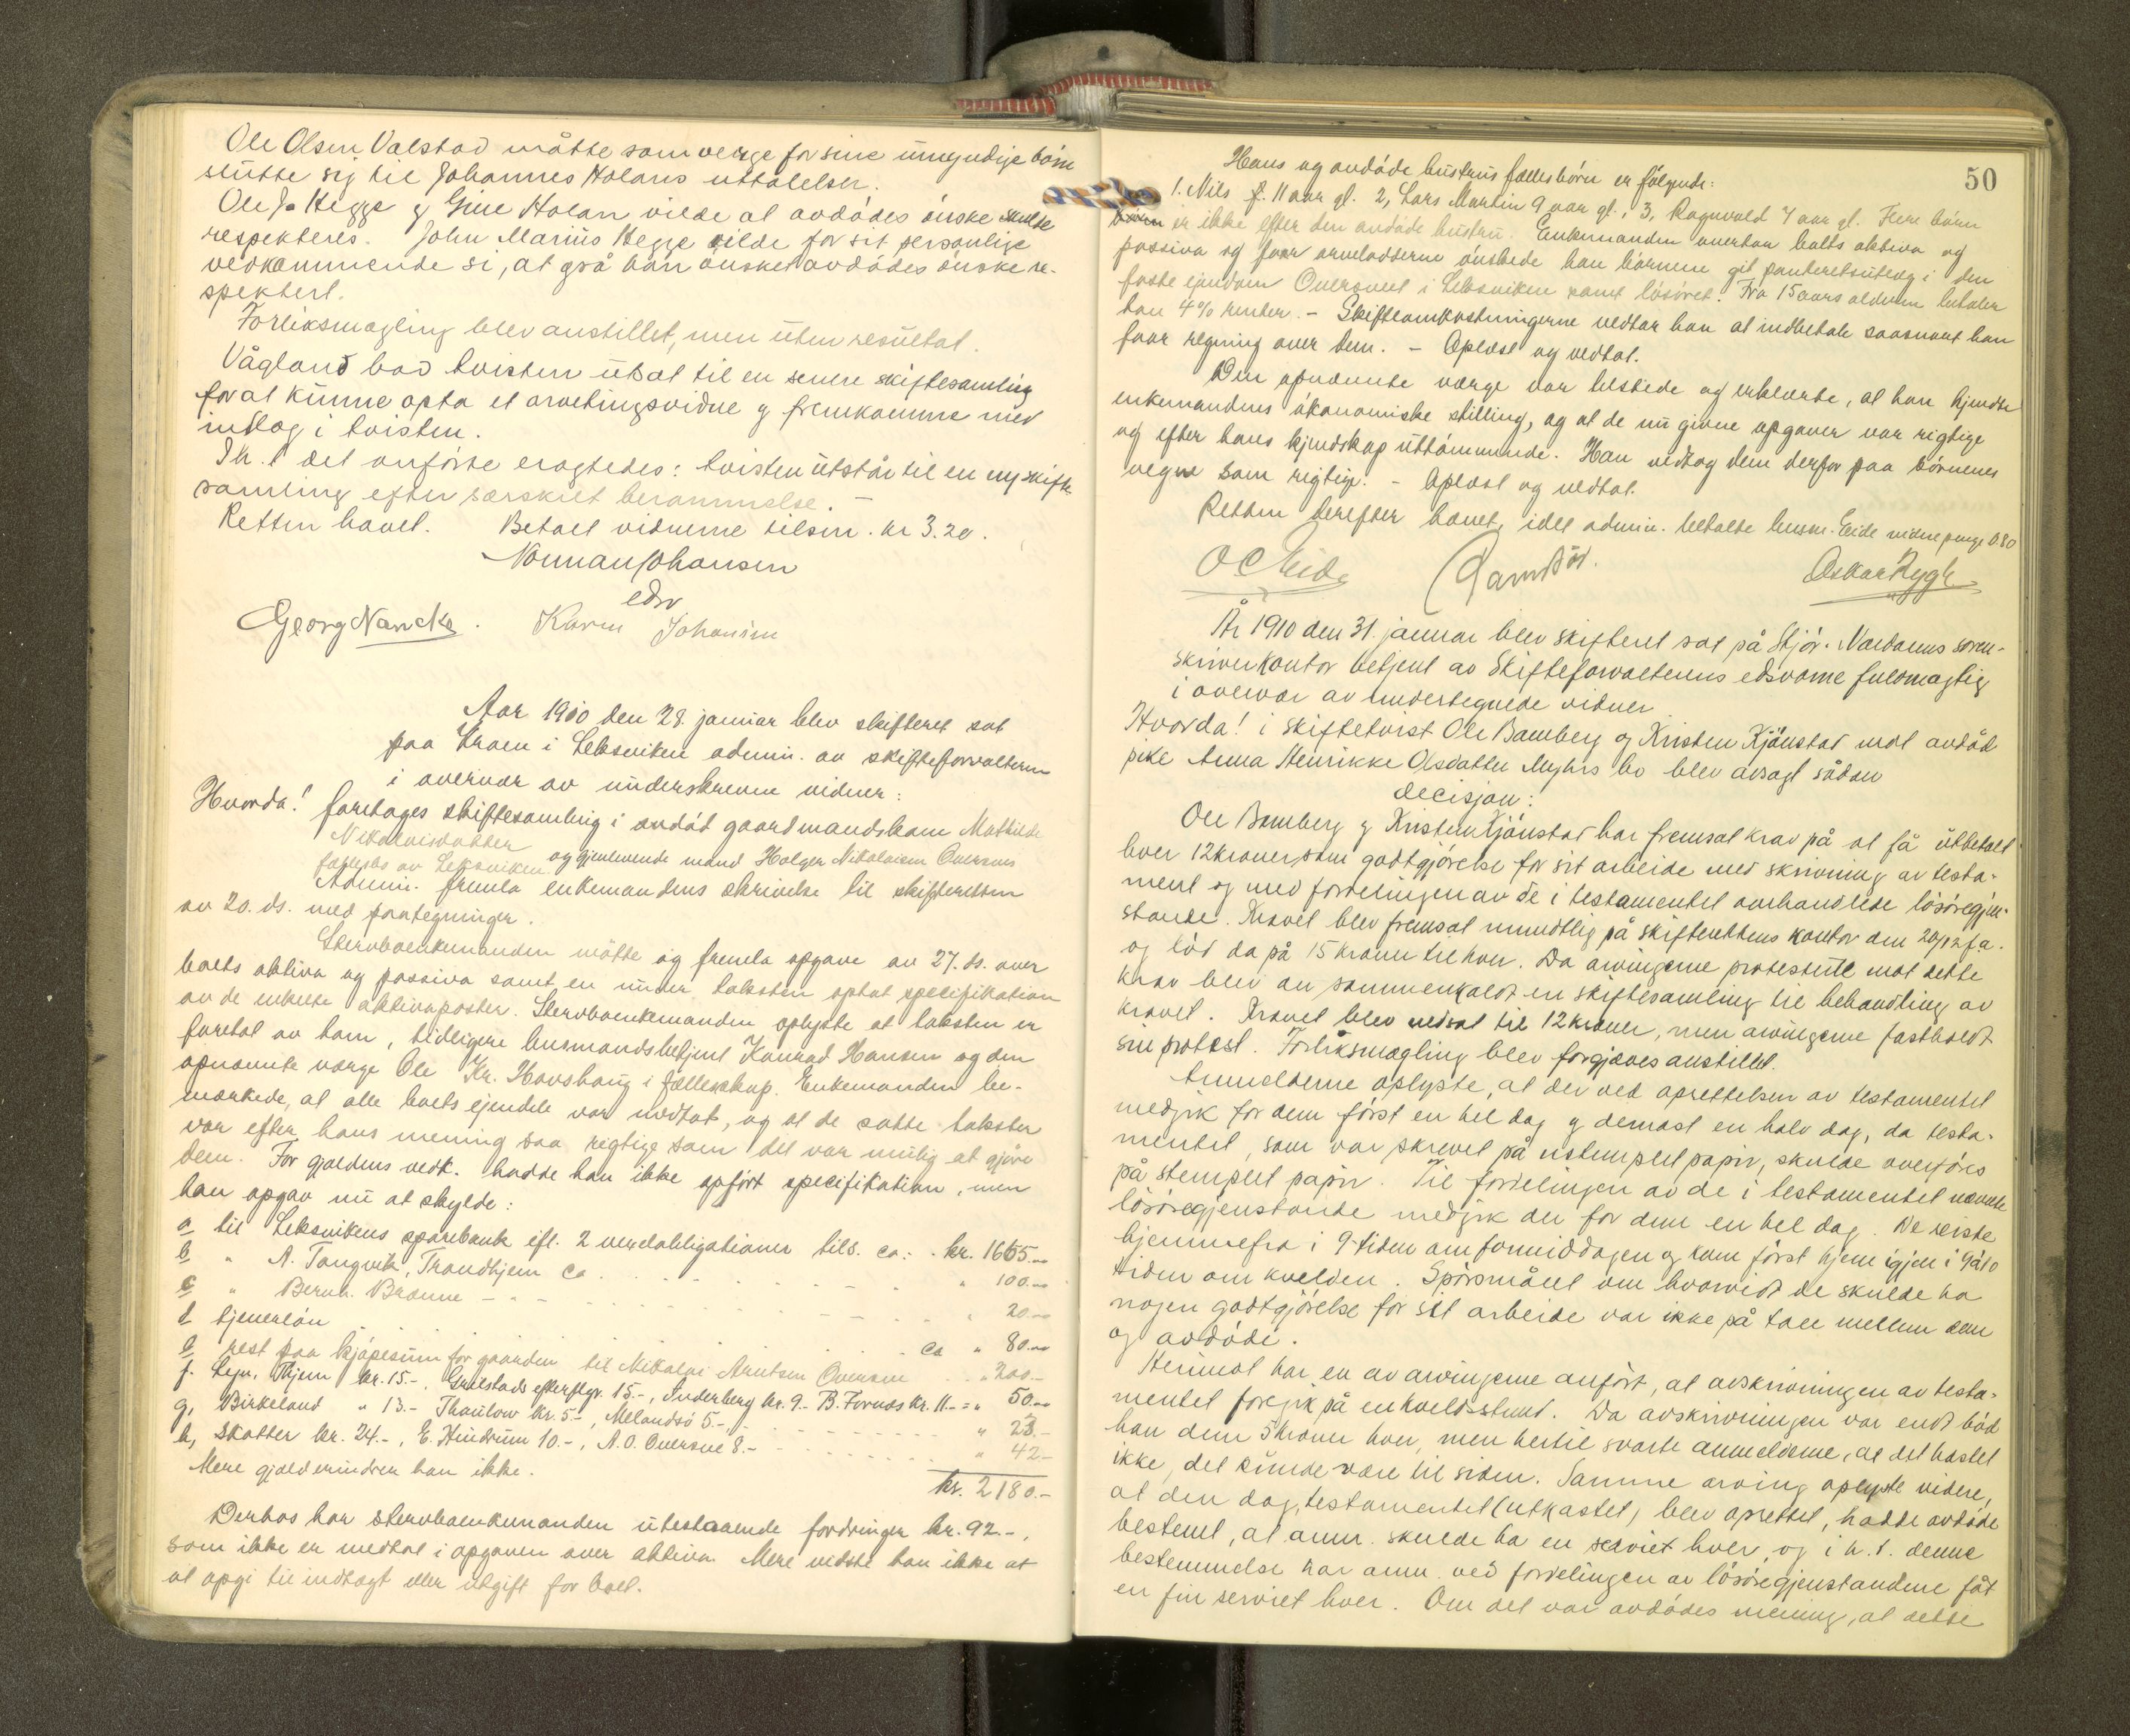 Ole Olsen Valstad måtte som verge for sine umyndige børn
slutte sig til Johannes Holans uttalelser.
Ole Js Hegge og Gine Holan vilde at avdødes ønske skulde
respekteres. John Marius Hegge vilde for sit personlige
vedkommende si, at også han ønsket avdødes ønske re-
spektert.
Forliksmægling blev anstillet, men uten resultat.
Vågland bad tvisten utsat til en senere skiftesamling
for at kunne opta et arvetingsvidne og fremkomme med
indlæg i tvisten.
Ih. t. det anførte eragtedes: tvisten utstår til en ny skifte-
samling efter særskilt berammelse. —
Retten hævet. Betalt vidnerne tilsm. kr 3.20.
Norman Johansen
edsv
Georg Nancke. Karen Johansen
Aar 1910 den 28. januar blev skifteret sat
paa Kroen i Leksviken admin. av skifteforvalteren
i overvær av underskrevne vidner:
Hvorda! foretages skiftesamling i avdøt gaardmandskone Mathilde
Nikolaisdatter
av Leksviken og gjenlevende mand Holger Nikolaisen Oversvee
Admin. fremla enkemandens skrivelse til skifteretten
av 20. ds. med paategninger.
Stervboenkemanden møtte og fremla opgave av 27. ds. over
boets aktiva og passiva samt en under taksten optat specifikation
av de enkelte aktivaposter. Stervboenkemanden oplyste at taksten er
foretat av ham, tidligere lensmandsbetjent Konrad Hansen og den
opnævnte værge Ole Kr. Hovshaug i fællesskap. Enkemanden be-
mærkede, at alle boets ejendele var medtat, og at de satte takster
var efter hans mening saa rigtige som det var mulig at gjøre
dem. For gjældens vedk. hadde han ikke opført specifikation, men
han opgav nu at skylde:
a til Leksvikens sparebank ifl. 2 vexelobligationer tils. ca: kr. 1665.—
b " A. Tangvik, Trondhjem ca " 100.—
c " Bernh. Brænne — " — " 20.—
d tjenerløn ca " 80.—
e rest paa kjøpesum for gaarden til Nikolai Arntsen Oversvee " 200.—
f. Lejn, Thjem kr. 15.—, Grøtstads efterflgr. 15.—, Inderberg kr. 9.— B. Fornæs kr. 11.— = " 50.—
g, Birkeland " 13.— Thaulow kr. 5.—, Melandsø 5.—, " 23.—
h, Skatter kr. 24.—, E. Hindrum 10.—, A. O. Oversvee 8.— " 42.—
Mere gjæld erindrer han ikke.
kr. 2180.—
Derhos har stervboenkemanden utestaaende fordringer kr. 92.—,
som ikke er medtat i opgaven over aktiva. Mere vidste han ikke at
at opgi til indtægt eller utgift for boet.
50
Hans og avdøde hustrus fællesbørn er følgende:
1. Nils f. 11 aar gl. 2, Lars Martin 9 aar gl., 3, Ragnvald 4 aar gl. Flere børn
er ikke efter den avdøde hustru. Enkemanden overtar boets aktiva og
passiva og for arvelodderne ønskede han børnene git panteretsutlæg i den
faste ejendom Oversveet i Leksviken samt løsøret. Fra 15 aars alderen betaler
han 4% renter. — Skifteomkostningerne vedtar han at indbetale saasnart han
faar regning over dem. — Oplæst og vedtat.
Den opnævnte værge var tilstede og erklærte, at han kjendte
enkemandens økonomiske stilling, og at de nu givne opgaver var rigtige
og efter hans kjendskap uttømmende. Han vedtog dem derfor paa børnenes
vegne som rigtige. — Oplæst og vedtat.
Retten derefter hævet, idet admin. betalte lensm. Eide vidnepenge 0.80
O C Eide Oskar Rygh
År 1910 den 31. januar blev skifteret sat på Stjør- Værdalens soren-
skriverkontor betjent av Skifteforvalterens edsvorne fuldmægtig
i overvær av undertegnede vidner
Hvorda! i skiftetvist Ole Bamberg og Kristen Kjønstad mot avdød
pike Anna Henrikke Olsdatter Myhrs bo blev avsagt sådan
decisjon:
Ole Bamberg og Kristen Kjønstad har fremsat krav på at få utbetalt
hver 12 kroner som godtgjørelse for sit arbeide med skrivning av testa-
ment og med fordelingen av de i testamentet omhandlede løsøregjen-
stande. Kravet blev fremsat mundtlig på skifterettens kontor den 20/12 f.a.
og lød da på 15 kroner til hver. Da arvingerne protesterte mot dette
krav blev en sammenkaldt en skiftesamling til behandling av
kravet. Kravet blev nedsat til 12 kroner, men arvingerne fastholdt
sin protest. Forliksmægling blev forgjæves anstillet.
Anmelderne oplyste, at der ved oprettelsen av testamentet
medgik for dem først en hel dag og dernæst en halv dag, da testa-
mentet, som var skrevet på ustemplet papir, skulde overføres
på stemplet papir. Til fordelingen av de i testamentet nævnte
løsøregjenstande medgik der for dem en hel dag. De reiste
hjemmefra i 9-tiden om formiddagen og kom først hjem igjen i 9 à 10
tiden om kvelden. Spørsmålet om hvorvidt de skulde ha
nogen godtgjørelse for sit arbeide var ikke på tale mellem dem
og avdøde.
Herimot har en av arvingerne anført, at avskrivningen av testa-
mentet foregik på en kveldsstund. Da avskrivningen var endt bød
han dem 5 kroner hver, men hertil svarte anmelderne, at det hastet
ikke, det kunde være til siden. Samme arving oplyste videre,
at den dag, testamentet (utkastet) blev oprettet, hadde avdøde
bestemt, at anm. skulde ha en serviet hver, og i h. t. denne
bestemmelse har anm. ved fordelingen av løsøregjenstandene fåt
en fin serviet hver. Om det var avdødes mening, at dette